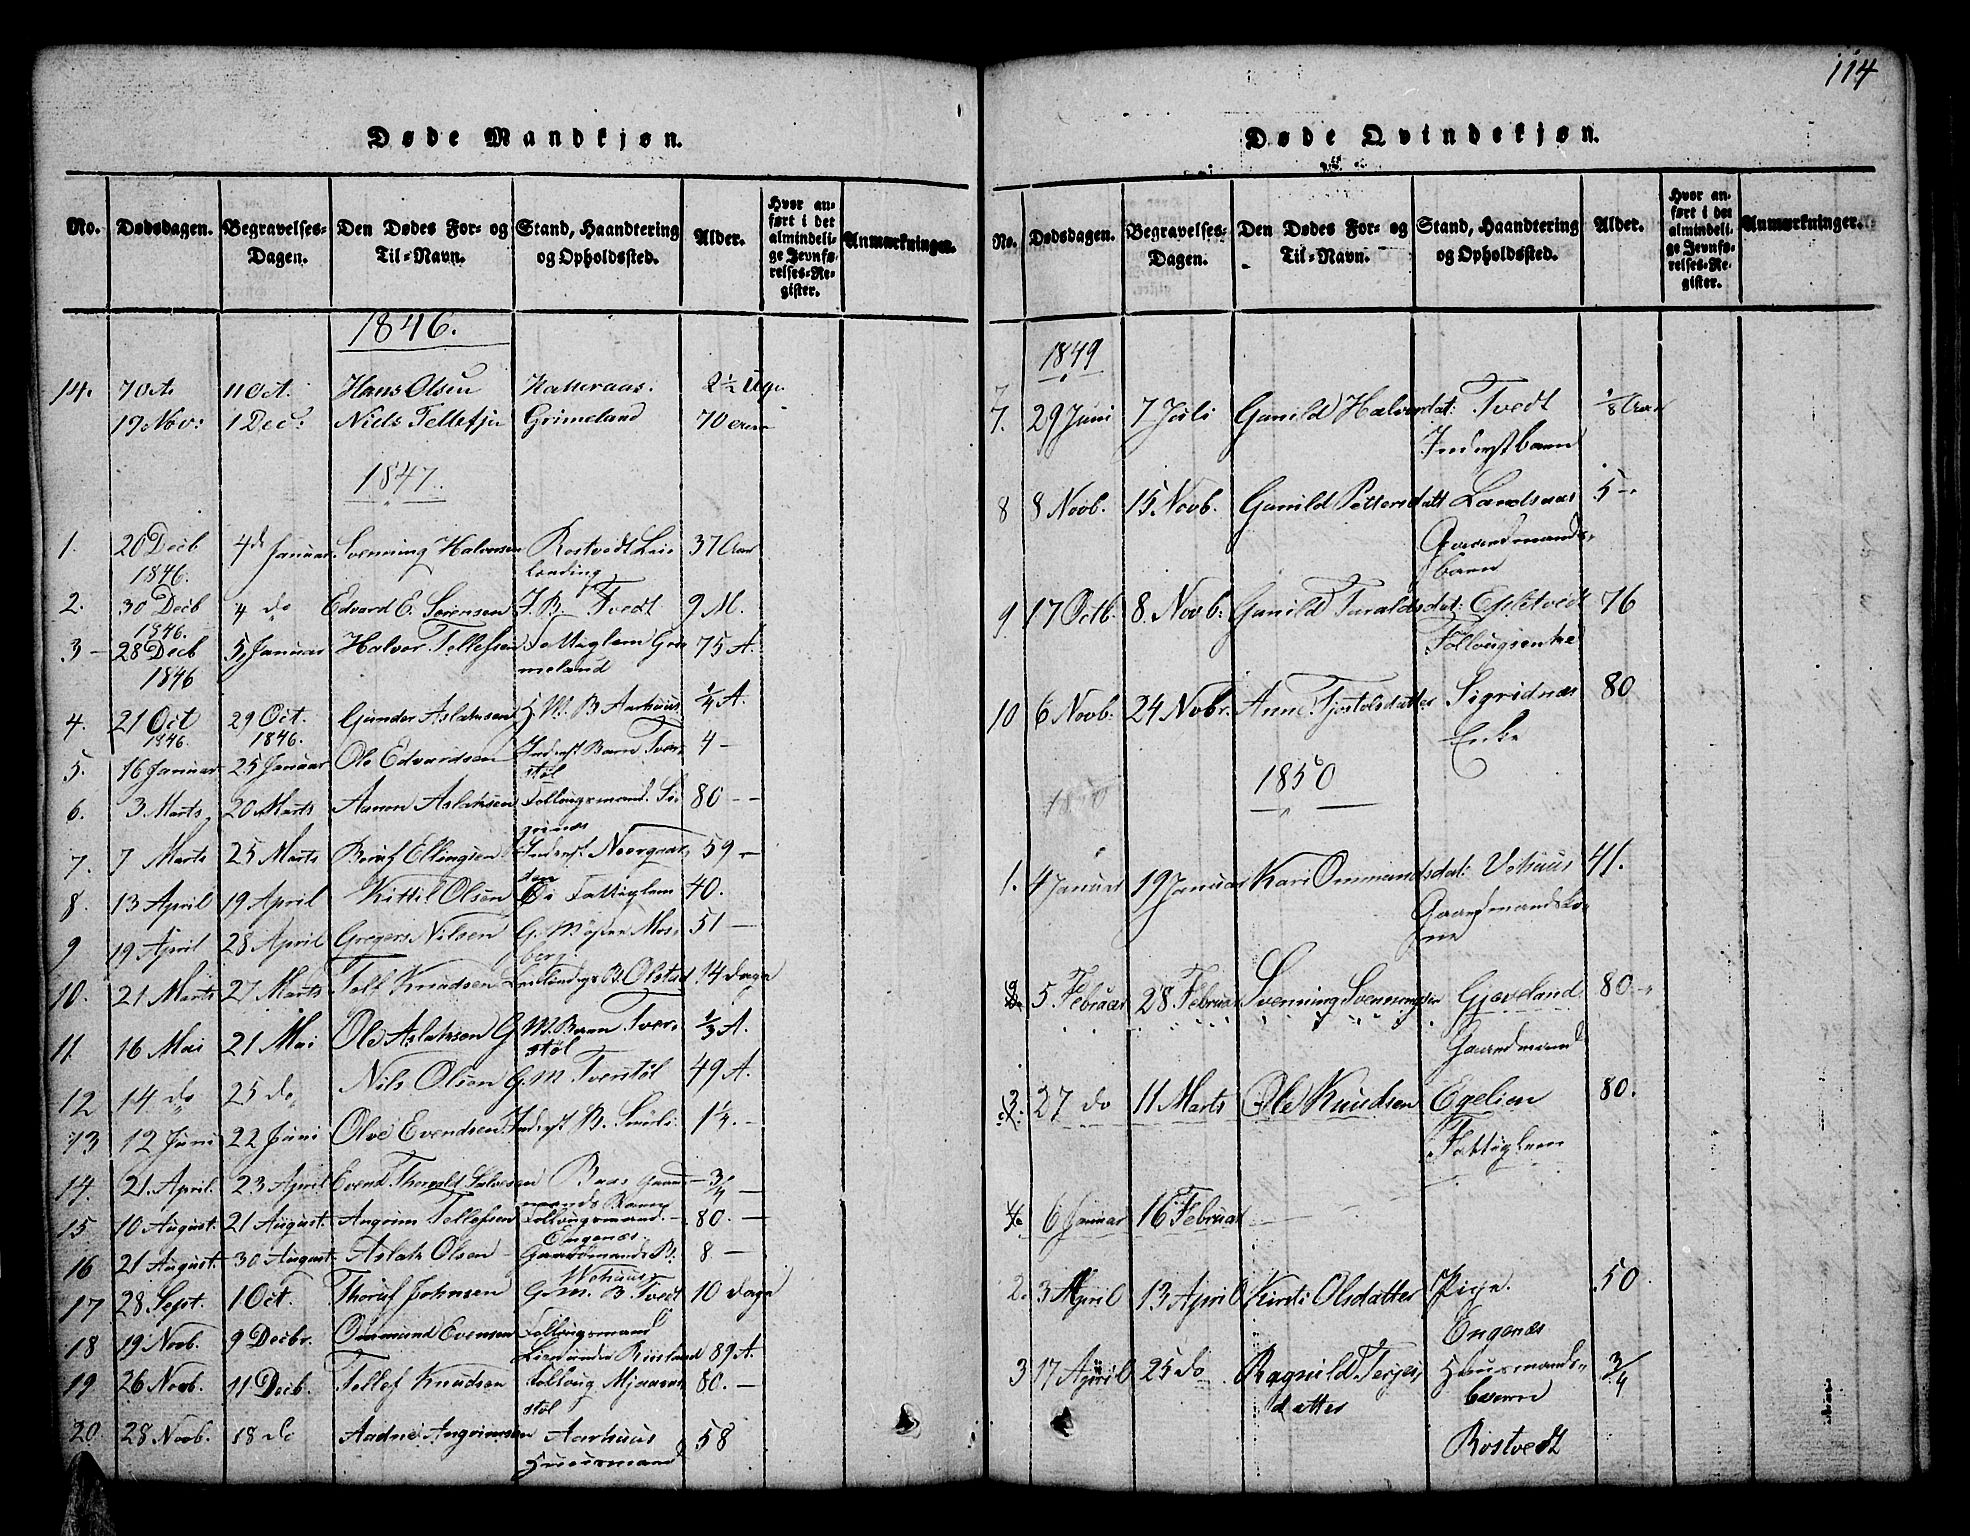 114
Døde Mandkjøn.
No. Dødsdagen. Begravelses-Dagen. Den Dødes For- og Til-Navn. Stand, Haandtering og Opholdssted. Alder. Hvor anført i det almindelige Jevnførelses-Register. Anmærkninger.
1846.
14. 7 Oct. 11 Oct. Hans Olsen Katteraas. 2½ Uge
19 Nov: 1 Dec: Niels Tellefsen Grimeland 70
1847.
1. 20 Decb 4de Januar Svenning Halvorsen Rostvedt Lei 37 Aar
1846. lending
2. 30 Decb 4 do Edvard E. Sörensen I. B. Tvedt 9 M.
1846.
3 - 28 Decb 5 Januar Halvor Tellefsen Fattiglem Gri 75 A.
1846 meland
4. 21 Oct 29 Oct. Gunder Aslaksen H. M. B Aarhuus ¼ A.
1846. 1846.
5. 16 Januar 25 Januar Ole Edvardsen Inderst Barn Tver 4 -
støl
6. 3 Marts 20 Marts Aanon Aslaksen Follougsmand. Si 80 --
grinæs
7. 7 Marts 25 Marts Beruf Ellingsen Inderst Noergaar 59 -
den
8. 13 April 19 April Kittil Olsen Fattiglem 40.
9 19 April 28 April Gregers Nilsen G. M Mos 51 -
berg.
10. 21 Marts 27 Marts Tolf Knudsen Leilændings B. Olstad 14 dage
11. 16 Mai 21 Mai Ole Aslaksen G. M. Barn Tver ⅓ A.
støl
12 14 do 25 do Nils Olsen G. M Tverstøl 49 A.
13 12 Juni 22 Juni Olve Evendsen Inderst B. 1¼. -
14. 21. April. 23 April Evend Thorvald Halvorsen Baas Gaard ¾ -
mands Barn
15 10 August. 21 August. Angrim Tellefsen Follougsmand. 80. -
Engenæs.
16 21 August. 30 August Aslak Olsen Gaardmands B. 8 -
Wehuus
17 28 Sept. 1 Oct. Thoruf Johnsen G. M. B. Tvedt 10 dage
18 19 Novb. 9 Decbr. Ommund Evensen Follougsmand
Lien under Risland 89 A.
19 26 Novb. 11 Decb. Tellef Knudsen Folloug Mjaavas 80. -
støl
20. 28 Novb. 18 do Aadne Angrimsen Aarhuus 58
Huusmand
Døde Qvindekjøn.
No. Dødsdagen. Begravelses-Dagen. Den Dødes For- og Til-Navn. Stand, Haandtering og Opholdssted. Alder. Hvor anført i det almindelige Jevnførelses-Register. Anmærkninger.
1849
7
7. 29 Juni 7 Juli Gunild Halvorsdat: Tvedt ⅛ Aar
Inderstbarn
8 8 Novb. 15 Novb. Gunild Pettersdatt Landsaas 5 -
Gaardmands
barn
9 17 Octb. 8. Novb: Gunild Taraldsdat: Espetvedt 76
Follougsenke
10 6 Novb. 24 Novbr. Anne Tjostolsdatter Sigridnæs 80
Enke
1850
1850
1. 4 Januar 19 Januar Kari Ommundsdat: Vehuus 41.
Gaardmandsko
ne
5. Februar 28. Februar Svenning Svenningsen Gjeveland 80.
Gaardmand
3. 27 do 11 Marts Ole Knudsen Egelien 80.
Fattiglem
4. 6 Januar 16 Februar
2. 3 April 13 April Kirsti Olsdatter Pige. 50
Engenæs
3 17 April 25 do Ragnild Terjes Huusmands ¾
datter baarn
Rostvedt